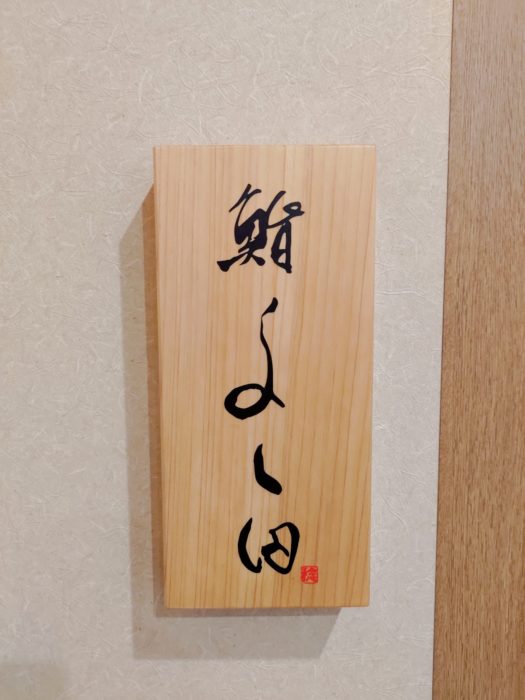 鮨
よし田